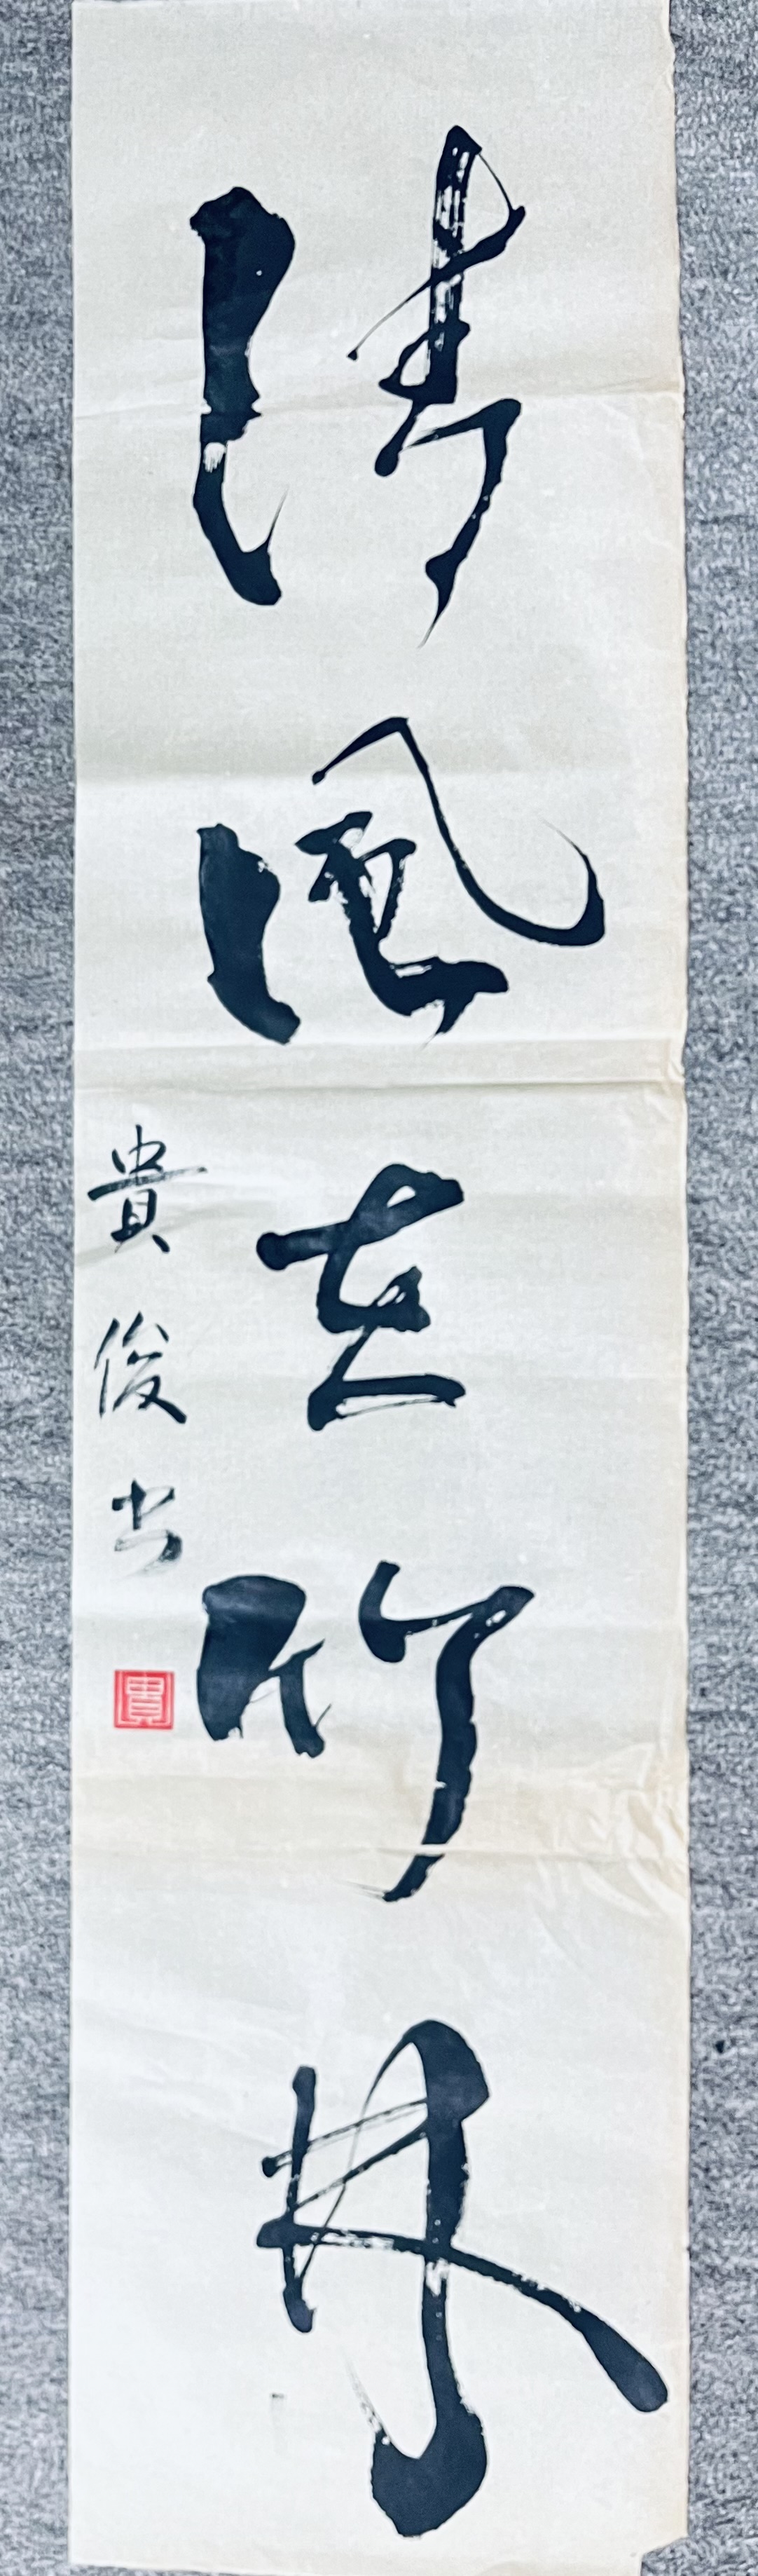 清風在竹林
貴俊书
貴